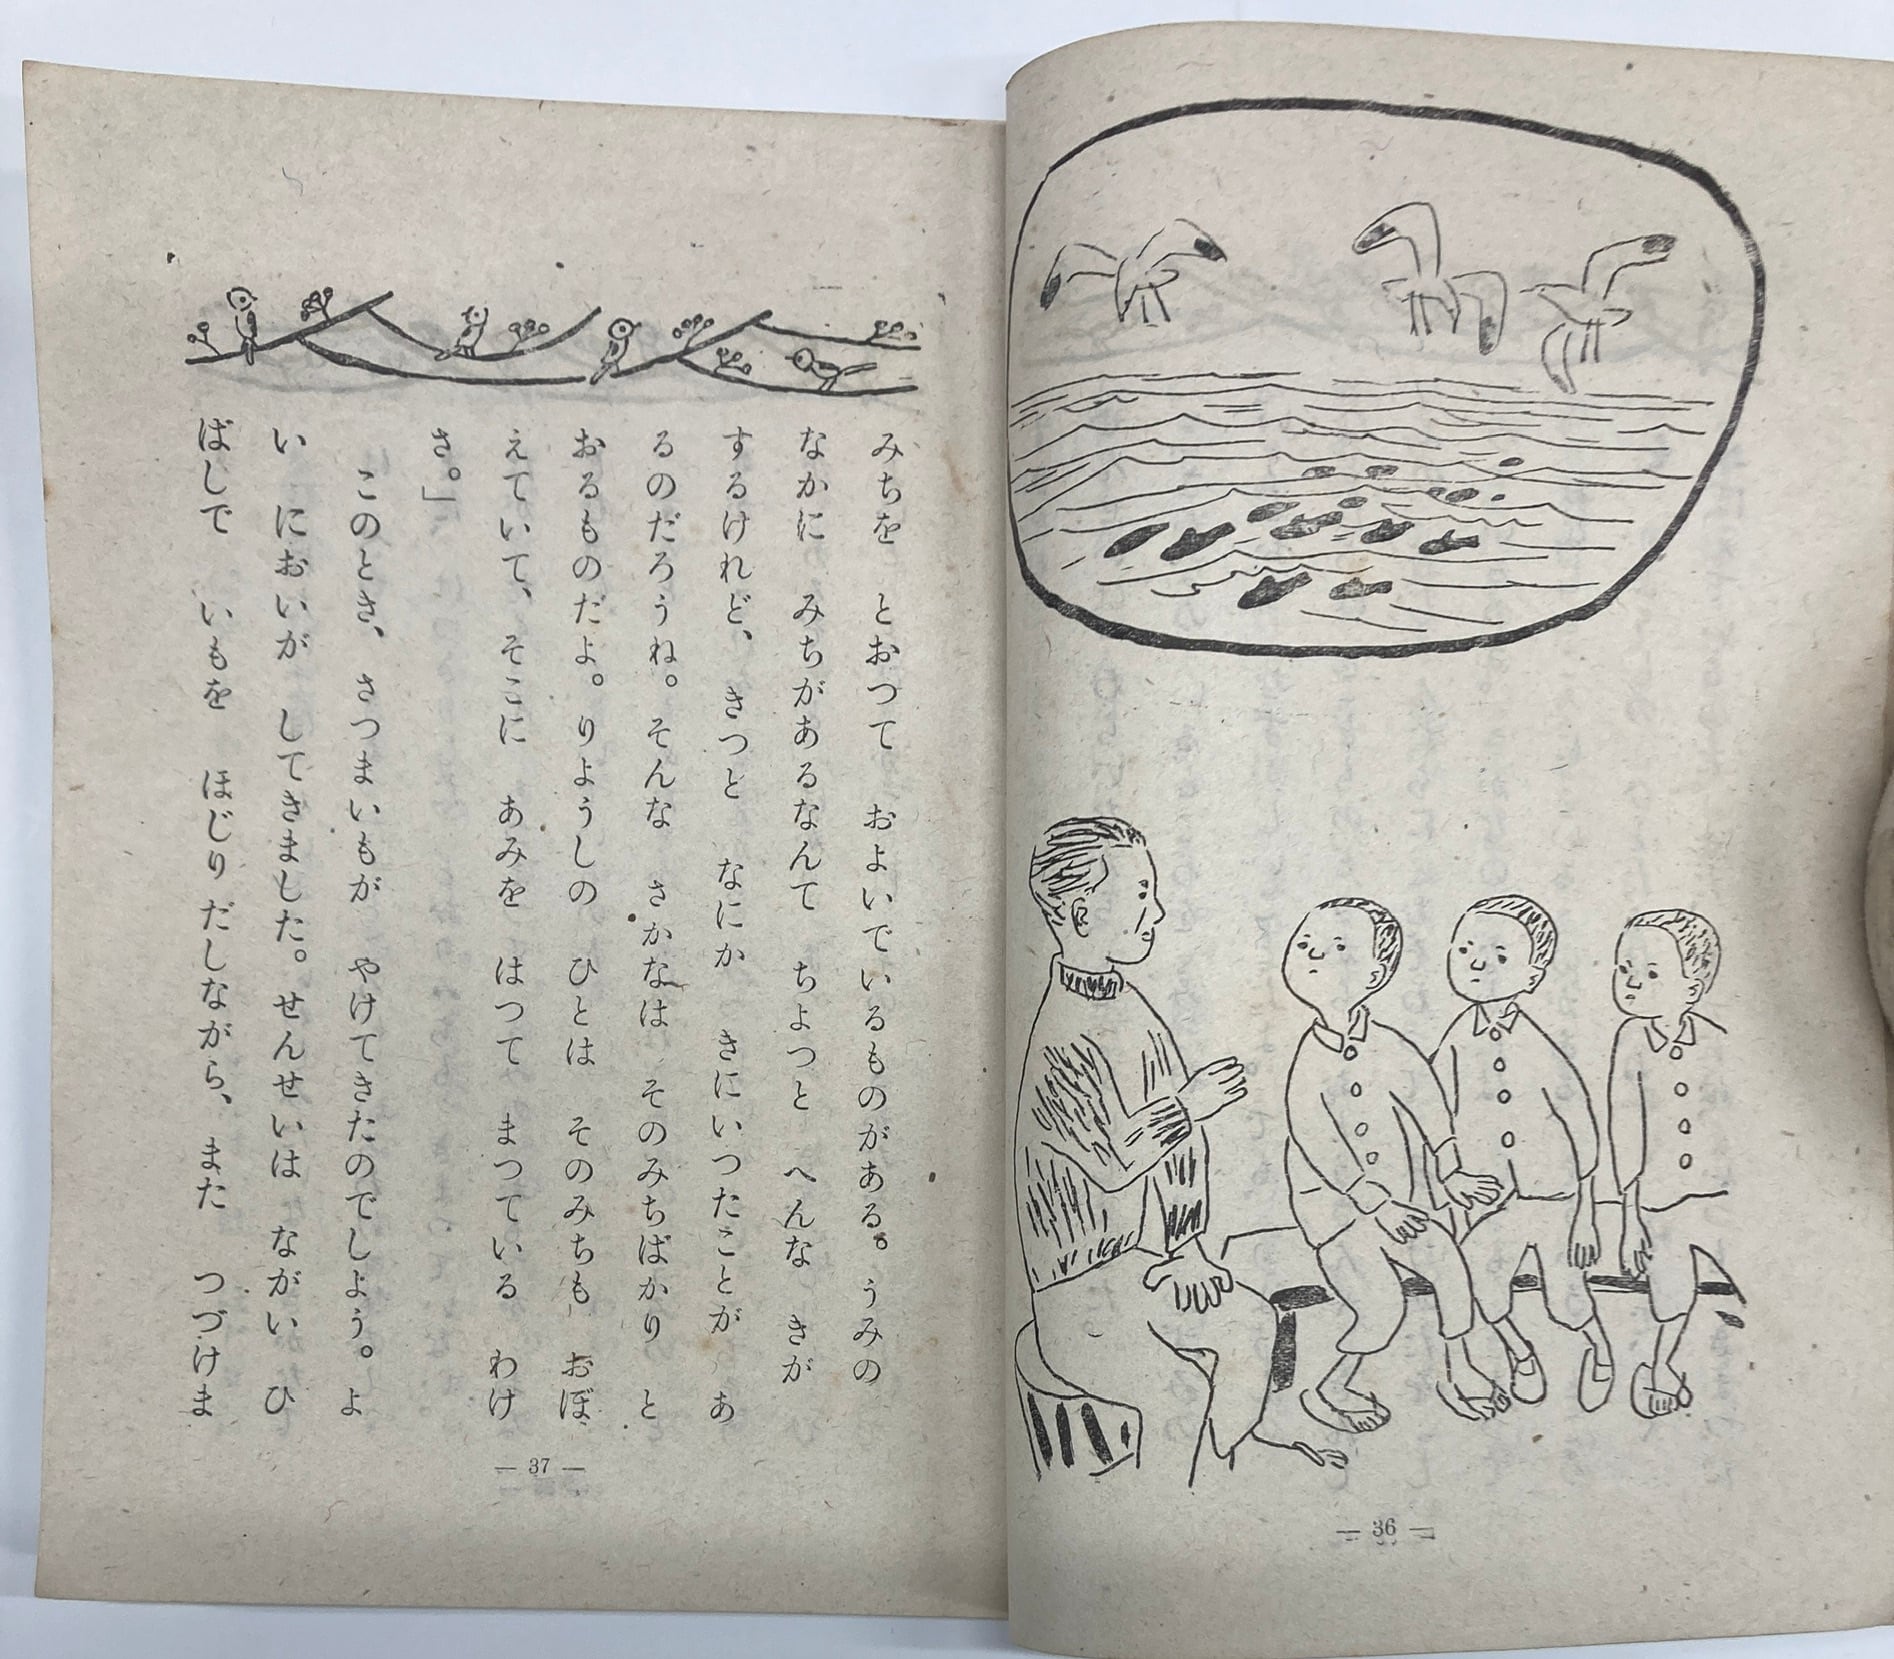 みちを とおつて およいでいるものがある。うみの
なかに みちがあるなんて ちよつと へんな きが
するけれど、 きつと なにか きにいつたことが あ
るのだろうね。 そんな さかなは そのみちばかり と
おるものだよ。りようしの ひとは そのみちも おぼ
えていて、そこに あみを はつて まつている わけ
さ。」
このとき、 さつまいもが やけてきたのでしよう。よ
い においが してきました。せんせいは ながい ひ
ばしで いもを ほじりだしながら、 また つづけま
— 37 —
— 36 —